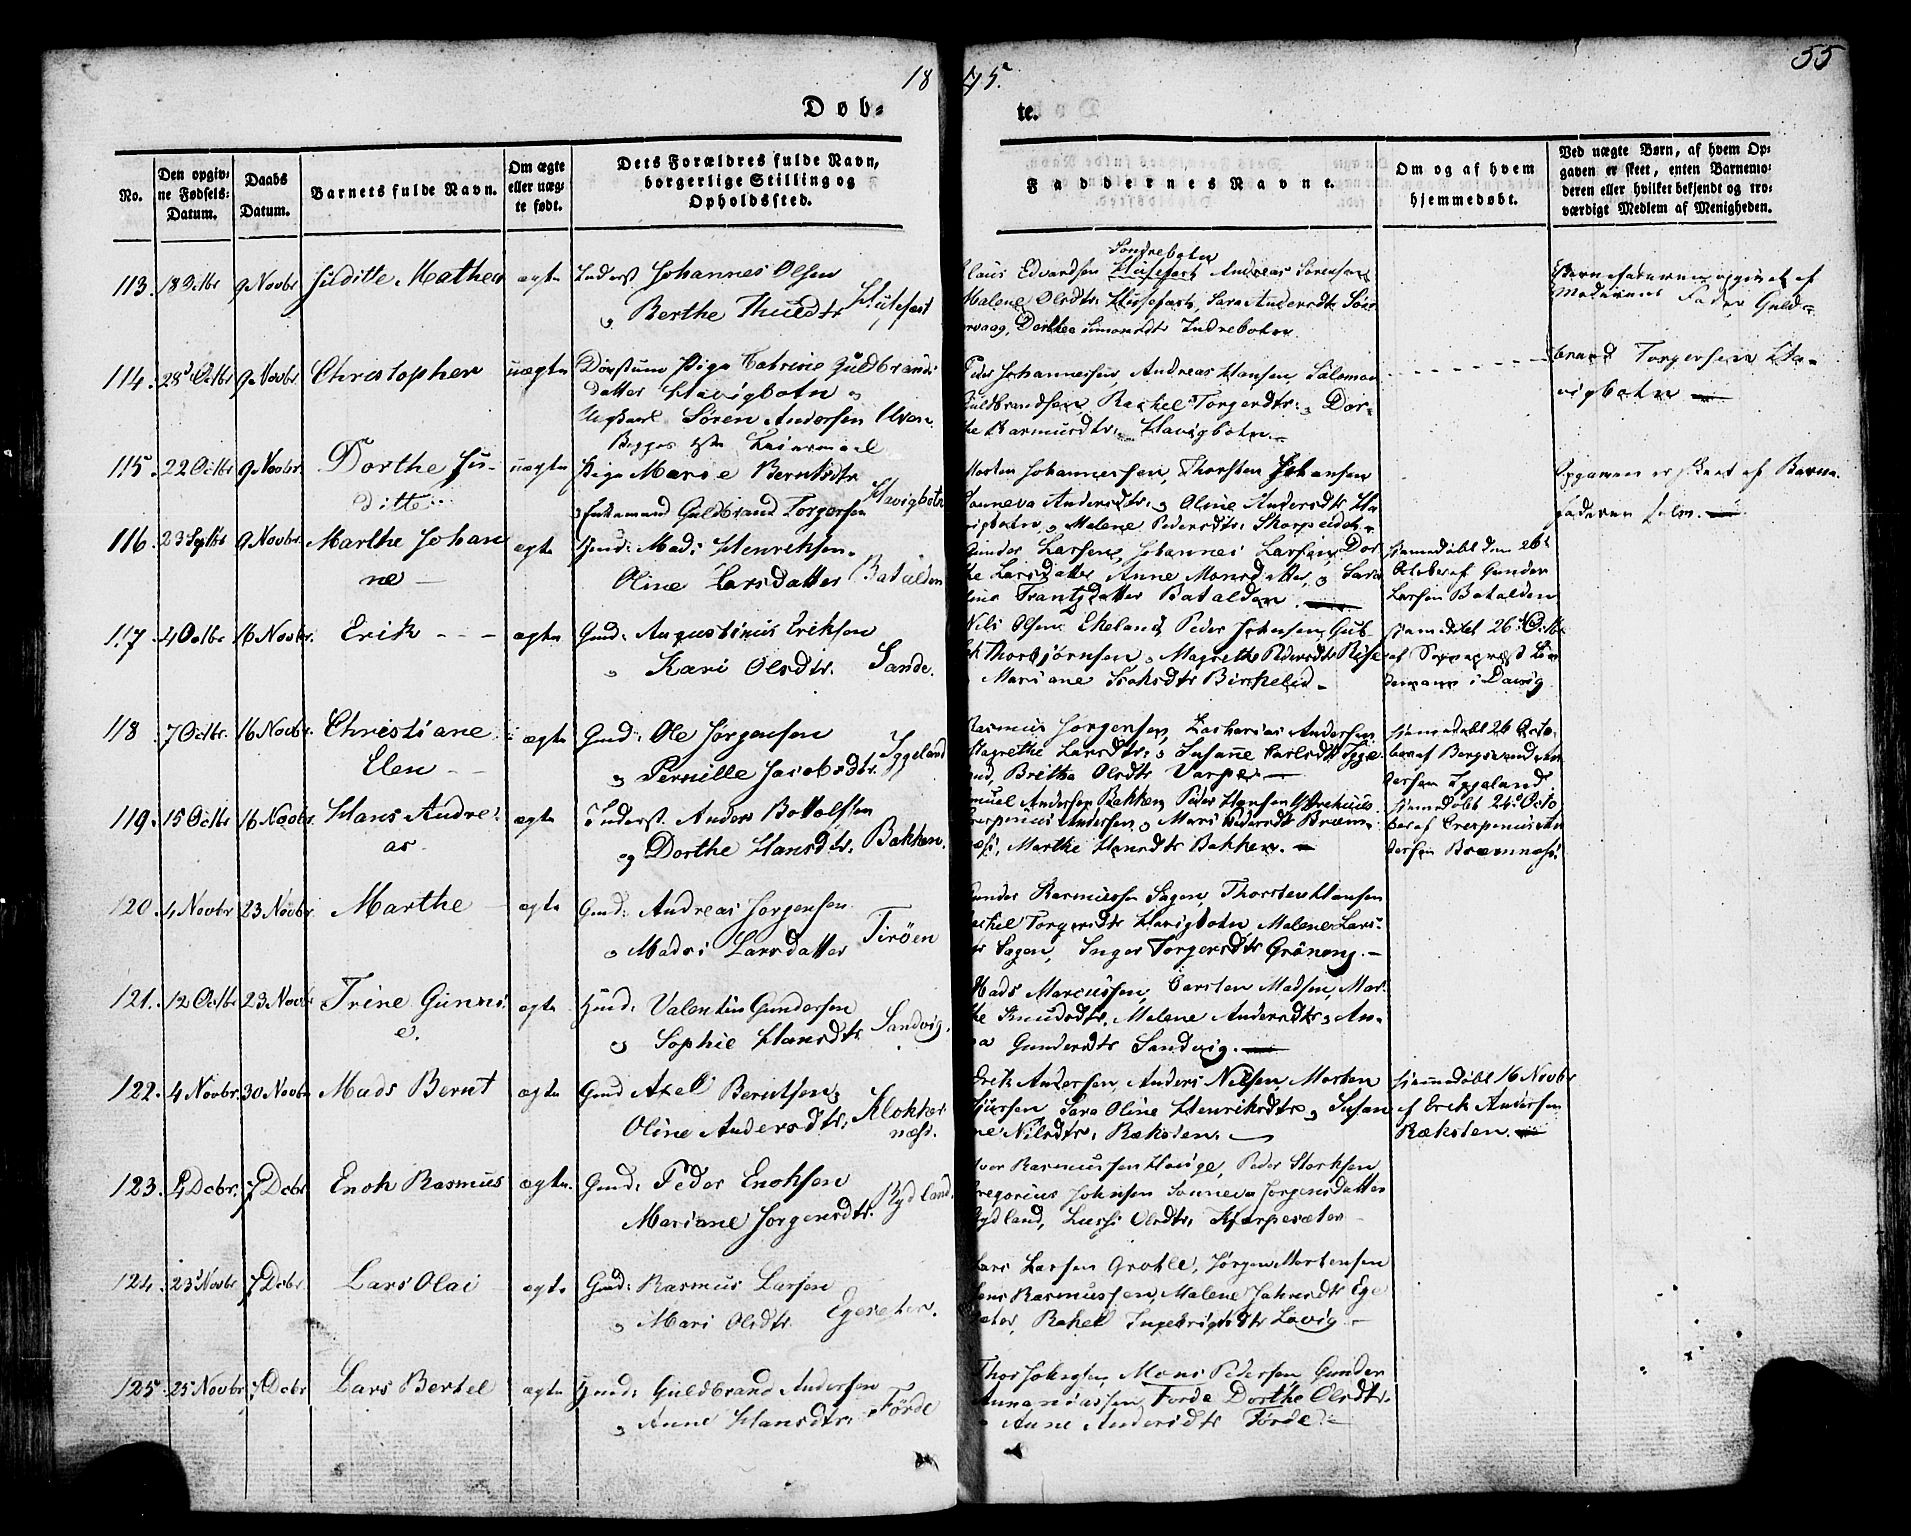 18 45.
55
Døb-
te.
No.
Den opgiv-
ne Fødsels-
Datum.
Daabs
Datum.
Barnets fulde Navn.
Om ægte
eller uæg-
te født.
Dets Forældres fulde Navn,
borgerlige Stilling og
Opholdssted.
Faddernes Navne.
Om og af hvem
hjemmedøbt.
Ved uægte Børn, af hvem Op-
gaven er skeet, enten Barnemo-
deren eller hvilket bekjendt og tro-
værdigt Medlem af Menigheden.
113. 18 Octbr 9 Novbr Juditte Mathea ægte Inderst Johannes Olsen
og Berthe Knudtr Husefest
Sondrebotn
Claus Edvardsen Husefest Andreas Sørensen
Malene Olsdtr: Husefest, Sara Andersdtr
Dorthea Simonsdtr Indrebotn
Barnefaderen opgivet af
Moderens Fader Guld-
brand Torgersen Ha-
vigbotn
114. 28 Octbr 9 Novbr Christopher uægte Pige Catrine Guldbrands
datter Havigbotn og
Ungkarl Søren Andersen
Begges 1ste Leiermaal
Peder Johannessen, Andreas Hansen, Salomon
Guldbrandsen Rachel Torgersdtr: og Dor-
the Rasmusdtr: Havigbotn.
115. 22 Octbr 9 Novbr Dorthe Ju-
ditte
uægte Pige Marie Berntsdtr
og Enkemand Guldbrand Torgersen Havigbotn
Morten Johannessen, Thorsten Johansen
Sonneva Andersdtr: og Oline Andersdtr Ha
vigbotn, og Malene Pedersdtr:
Opgaven er skeet af Barne-
faderen selv.
116. 23 Septbr 9 Novbr Marthe Johan
ne
ægte Gmd: Mads Henriksen
Oline Larsdatter Batalden
Gunder Larsen, Johannes Larsen, Dor
the Larsdatter Anne Monsdatter, og Sara
lina Frantzdatter Batalden.
hjemmedøbt den 26
October af Gunder
Larsen Batalden
117. 4 Octbr 16 Novbr. Erik ægte Gmd: Augustinus Eriksen
og Kari Olsdtr. Sande.
Nils Olsen Ekeland, Peder Johnsen,
Thorbjørnsen og Magrethe Pedersdtr Rise
Mariane Isaksdtr Birkeland
hjemmedøbt 26 Octbr
af Sognepræst Lin
demann i Davig
118 7 Octbr. 16 Novbr. Christiane
Elen
ægte Gmd: Ole Jørgensen
og Pernille Jacobsdtr. Iggeland
Rasmus Jørgensen, Zacharias Andersen
Magrethe Larsdtr: og Susane Carlsdtr Igge
land, Britha Olsdtr Varpe.
hjemmedøbt 26 Octo-
ber af
dersen Iggeland
119. 15 Octbr 16 Novbr. Hans Andre-
as
ægte Inderst Anders Bottolfsen
og Dorthe Hansdtr: Bakken.
Samuel Andersen Bakken, Peder Hansen
Crespenius Andersen, og Mari Pedersdtr Bræm-
næs, Marthe Hansdtr Bakken.
hjemmedøbt 24 Octo
ber af Crespenius An
dersen Bræmnæs.
120. 4 Novbr 23 Novbr. Marthe ægte Gmd: Andreas Jørgensen
og Madsi Larsdatter Tirøen
Gunder Rasmussen Sagen, Thorsten Hansen
Rachel Torgersdtr Havigbotn, Malene Lars-
dtr Sagen, Inger Torgersdtr Grøneng.
121. 12 Octbr 23 Novbr Trine Gunni-
e.
ægte Gmd: Valentin Gundersen
og Sophie Hansdtr. Sandvig.
Mads Marcussen, Carsten Madsen, Mar-
the Knudsdtr, Malene Andersdtr og An-
na Gundersdtr Sandvig.
122. 4 Novbr. 30 Novbr Mads Bernt ægte Gmd Axel Berntsen
Oline Andersdtr: Klokker-
næs.
Erik Andersen, Anders Nilsen, Morten
Sjursen, Sara Oline Henriksdtr og Susan
ne Nilsdtr: Ræksten.
hjemmedøbt 16 Novbr
af Erik Andersen
Ræksten.
123. 4 Decbr. 7 Decbr Enok Rasmus ægte. Gmd: Peder Enoksen
Mariane Jørgensdtr. Rydland
Iver Rasmussen Hauge, Peder Storksen
Gregorius Johnsen Sonneva Jørgensdatter
Rydland, Lussi Olsdtr, Kjærpesæter
124. 23 Novbr 7 Decbr Lars Olai ægte Gmd: Rasmus Larsen
og Mari Olsdtr. Egesæter.
Lars Larsen Grotle, Jørgen Mortensen
Jens Rasmussen, Malene Johnsdtr Ege
sæter, Rakel Ingebrigtsdtr Lavig
125. 25 Novbr 7 Decbr Lars Bertel ægte Gmd: Guldbrand Andersen
og Anne Hansdtr. Førde
Thor Johnsen, Mons Pedersen Gunder
Annaniassen, Førde Dorthe Olsdtr
og Anne Andersdtr Førde